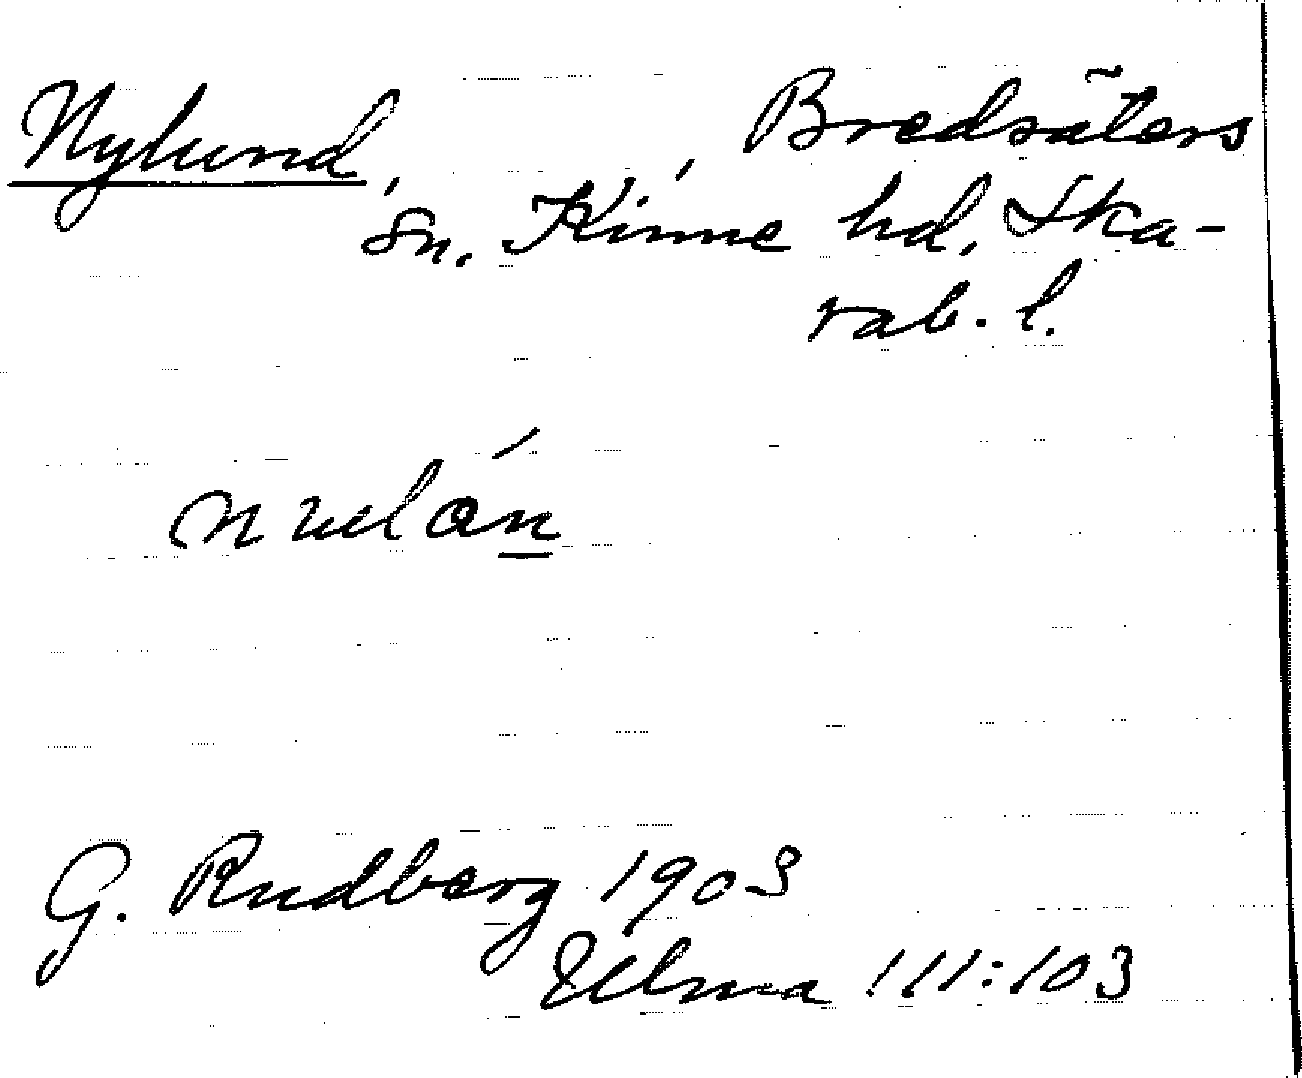 Nylund, Bredsäters
sn. Kinne hd, Ska-
rab. l.
G. Rudberg 1903
Ulma 111:103